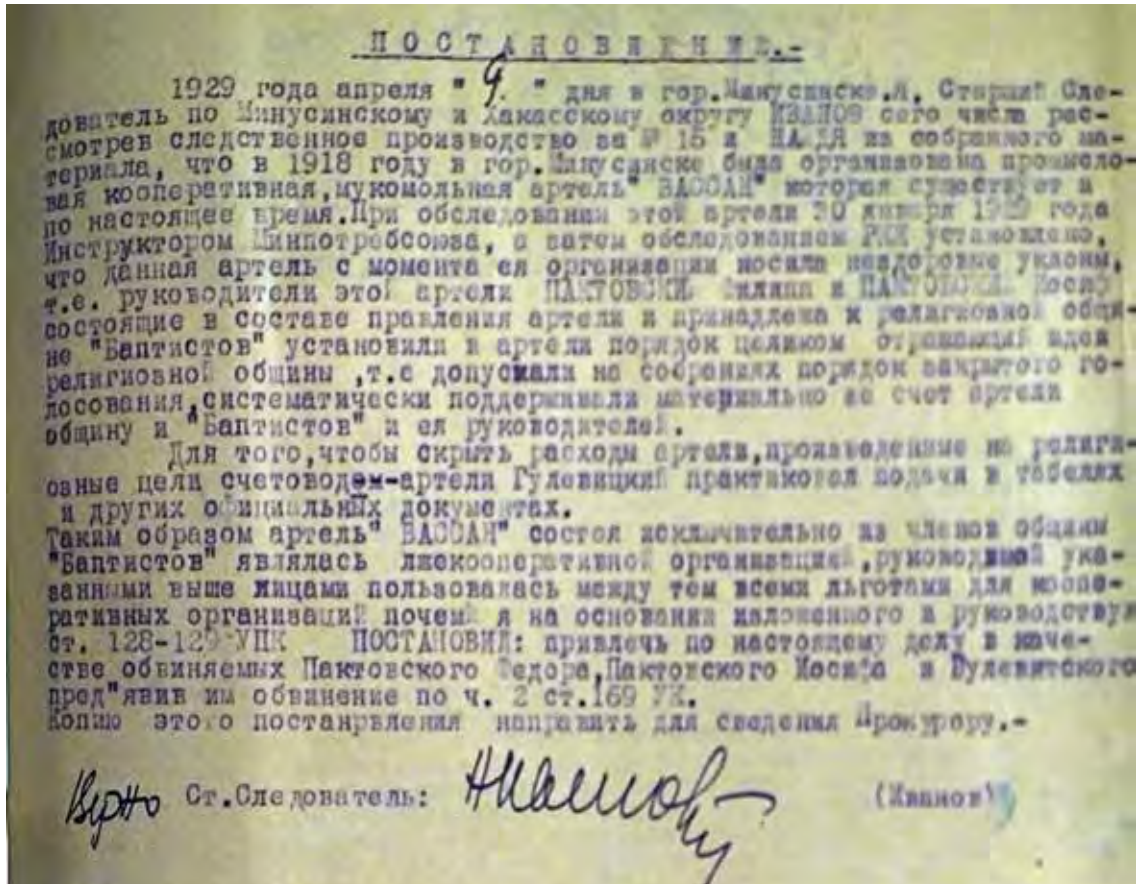 ПОСТАНОВЛЕНИЕ.-
1929 года апреля " 9. " дня в гор.Минусинске.Я, Старший Сле-
дователь по Минусинскому и Хакасскому округу ИВАНОВ сего числа рас-
смотрев следственное производство за № 15 и НАЙДЯ из собранного ма-
териала, что в 1918 году в гор.Минусинске была организована промысло-
вая кооперативная,мукомольная артель" ВАССАН" которая существует и
по настоящее время.При обследовании этой артели 30 января 1929 года
Инструктором Минпотребсоюза, а затем обследованием РКИ установлено,
что данная артель с момента ея организации носила нездоровые уклоны,
т.е. руководители этой артели ПАКТОВСКИЙ Филипп и ПАКТОВСКИЙ Иосиф
состоящие в составе правления артели и принадлежа к религиозной общи-
не "Баптистов" установили в артели порядок целиком отражающий идеи
религиозной общины ,т.е допускали на собраниях порядок закрытого го-
лосования,систематически поддерживали материально за счет артели
общину и "Баптистов" и ея руководителей.
Для того,чтобы скрыть расходы артели,произведенные на религи-
озные цели счетоводом-артели Гулевицкий практиковал в табелях
и других официальных документах.
Таким образом артель" ВАССАН" состоя исключительно из членов общины
"Баптистов" являлась лжекооперативной организацией,руководимой ука-
занными выше лицами пользовалась между тем всеми льготами для коопе-
ративных организаций почему я на основании изложенного и руководствуя
ст. 128-129 УПК ПОСТАНОВИЛ: привлечь по настоящему делу в каче-
стве обвиняемых Пактовского Федора,Пактовского Иосифа и
пред"явив им обвинение по ч. 2 ст.169 УК.
Копию этого постанрвления направить для сведения Прокурору.-
Верно Ст.Следователь: (Иванов)